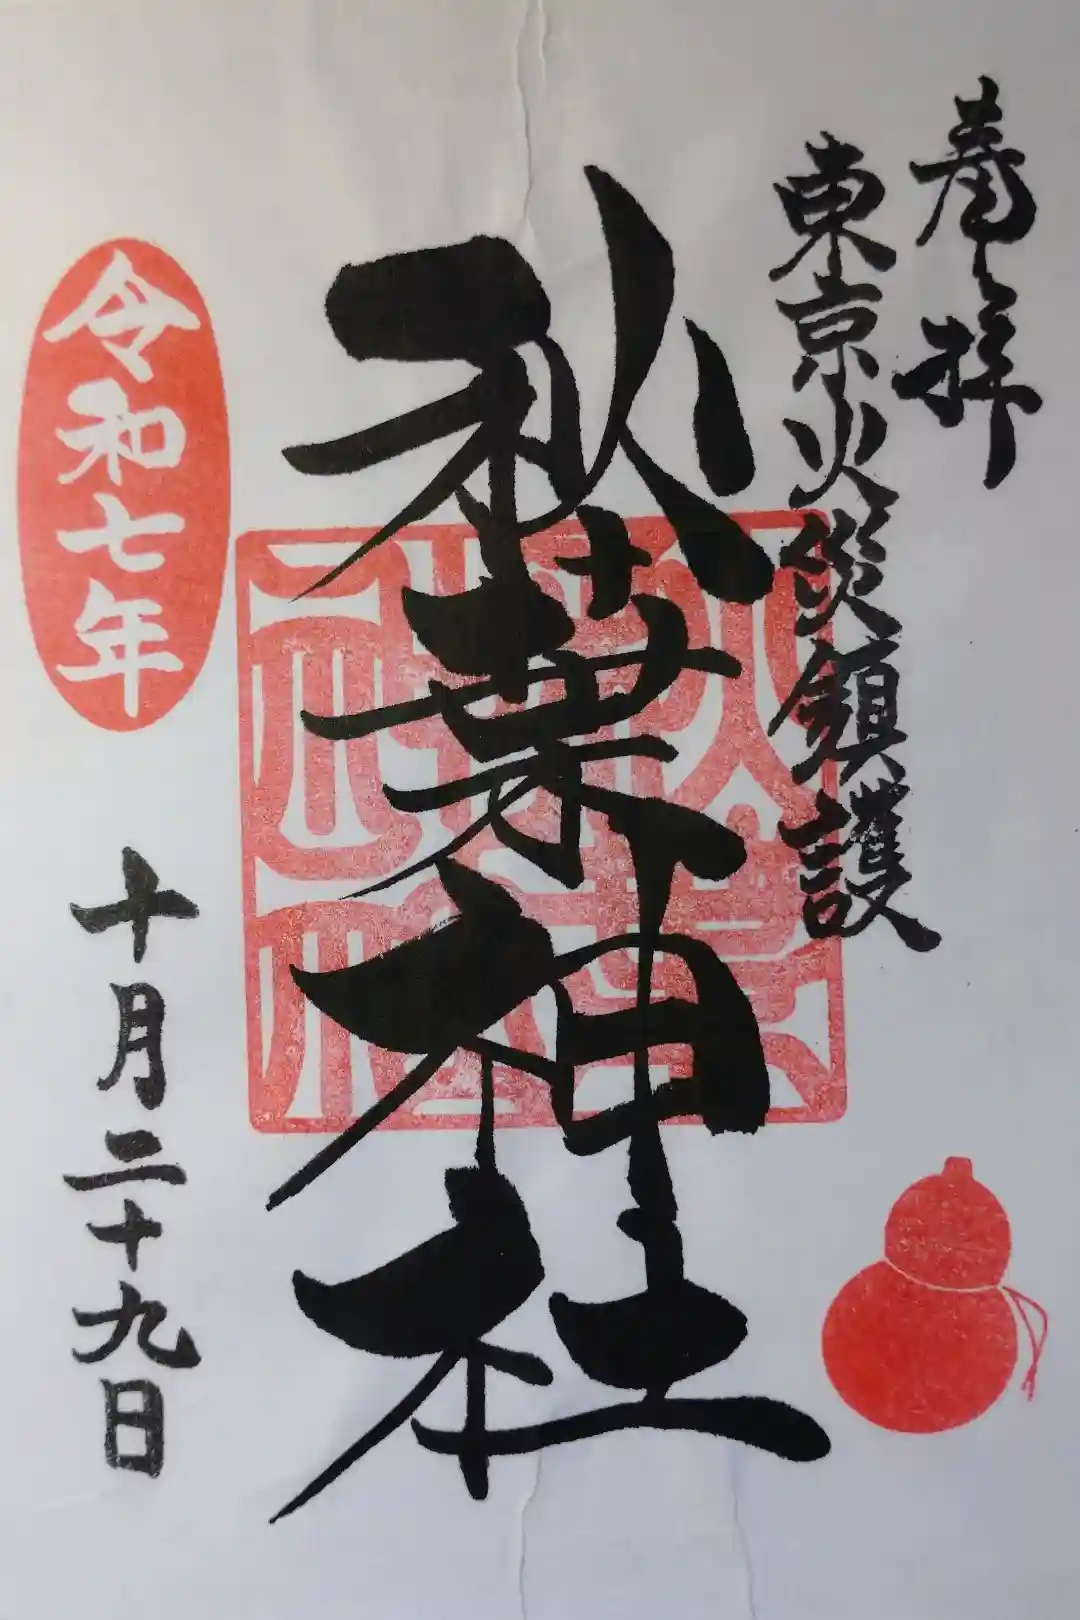 奉拝
東京火災鎮護
秋葉神社
秋葉神社
令和七年
十月二十九日